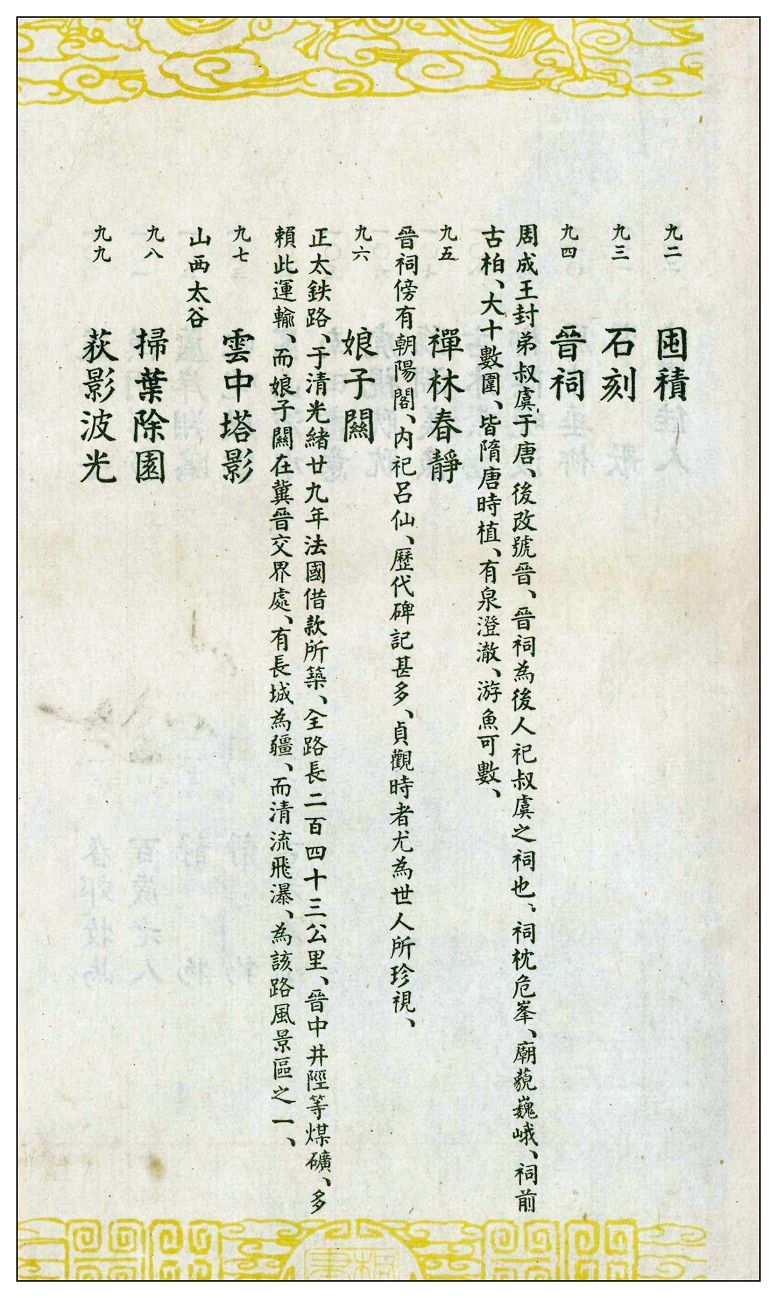 九二 囤積
九三 石刻
九四 晉祠
周成王封弟叔虞于唐、後改號晉、晉祠為後人祀叔虞之祠也、祠枕危峯、廟藐巍峨、祠前
古柏、大十數圍、皆隋唐時植、有泉澄澈、游魚可數、
九五 禪林春靜
晉祠傍有朝陽閣、內祀呂仙、歷代碑記甚多、貞觀時者尤為世人所珍視、
九六 娘子關
正太鉄路、于清光緒廿九年法國借款所築、全路長二百四十三公里、晉中井陘等煤礦、多
賴此運輸、而娘子關在冀晉交界處、有長城為疆、而清流飛瀑、為該路風景區之一、
九七 雲中塔影
山西太谷
九八 掃葉除園
九九 荻影波光